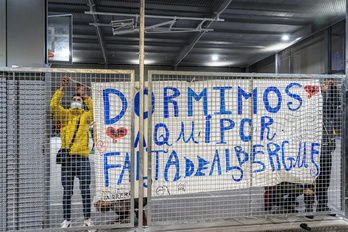 DORMIMOS
AQUI POR
FALTA DE ALBERGUES